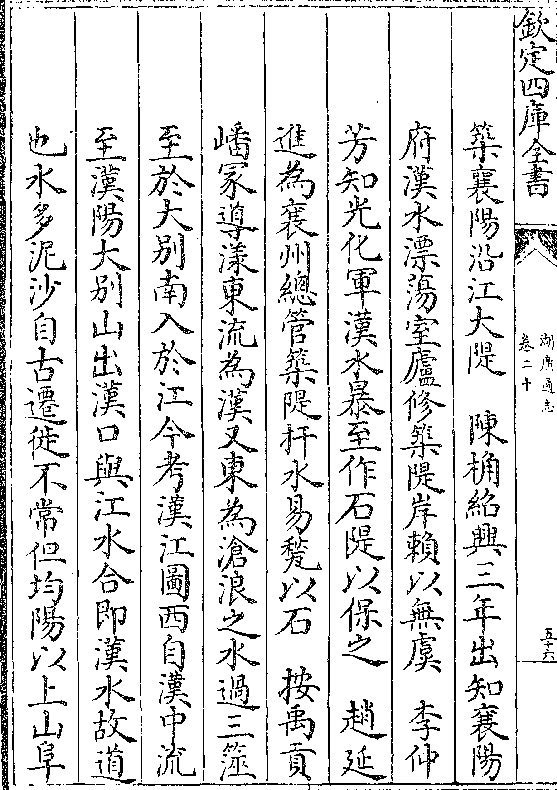 欽定四庫全書
湖廣通志
卷二十
五十六
築襄陽沿江大隄　陳桷紹興三年出知襄陽
府漢水漂蕩室廬修築隄岸賴以無虞　李仲
芳知光化軍漢水暴至作石隄以保之　趙延
進為襄州總管築隄扞水易甃以石　按禹貢
嶓冢導漾東流為漢又東為滄浪之水過三澨
至於大别南入於江今考漢江圖西自漢中流
至漢陽大别山出漢口與江水合即漢水故道
也水多泥沙自古遷徙不常但均陽以上山阜